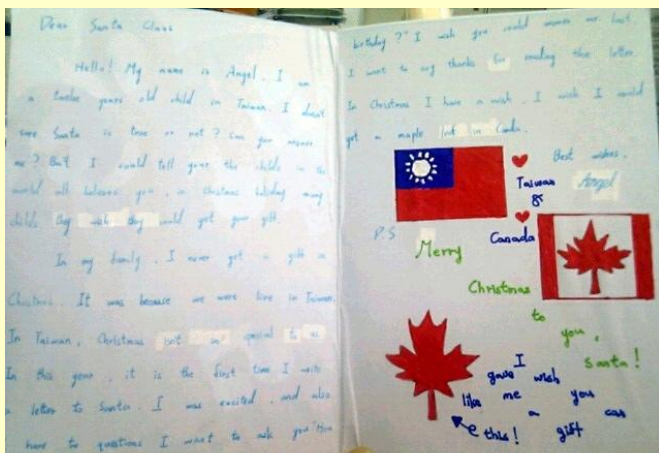 Dear Santa Claus
Hello! My name is Angel. I am
a twelve years old child in Taiwan. I doesn't
sure Santa is true or not? Can you answer
me? But I could tell your the childs in the
world all believes you, in christmas holiday many
childs they wish they could get your gift.
In my family, I never got a gift in
Christmas. It was because we were live in Taiwan.
In Taiwan, Christmas isn't special to us.
In this year, it is the first time I write
a letter to Santa. I was excited, and also
have to questions I want to ask you "How
birthday?" I wish you could answer me. Last
I want to say thanks for reading this letter.
In Christmas I have a wish. I wish I could
get a maple in
Best wishes,
Angel
Taiwan
&
Canada
P.S
Merry
Christmas
to
you,
Santa!
I wish
you can
gave me a gift
like this!